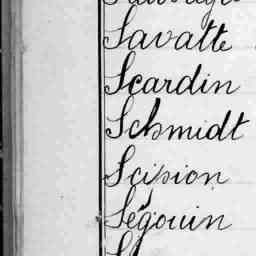 Savatte
Scardin
Schmidt
Scision
Ségouin